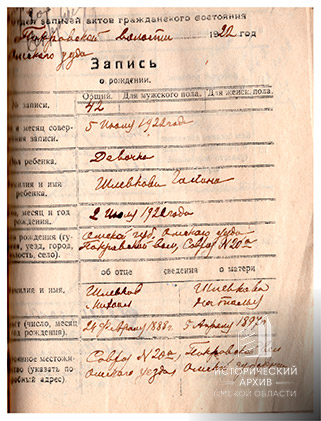 записей актов гражданского состояния
Покровской волости 1922 год
Омского уезда
Запись
о рождении.
Общий. Для мужского пола. Для женск. пола.
записи. 42
месяц совер-
записи. 5 Июлю 1922 года
ребенка. Девочка
и имя
ребенка. Шлевкова Галина
месяц и год
рождения. 2 Июлю 1922 года
рождения (гу-
уезд, город,
село). Омской губ, Омского уезда
Покровской вол, Совхоз N 20й
об отце сведения о матери
и имя. Шлевков Шлевкова
Михаил Настасия
(число, месяц
рождения). 24 Февраля 1888 г. 5 Апрелю
местожи-
(указать по-
адрес) Совхоз N 20й, Покровской вол
Омского уезда
ИСТОРИЧЕСКИЙ
АРХИВ
ОМСКОЙ ОБЛАСТИ